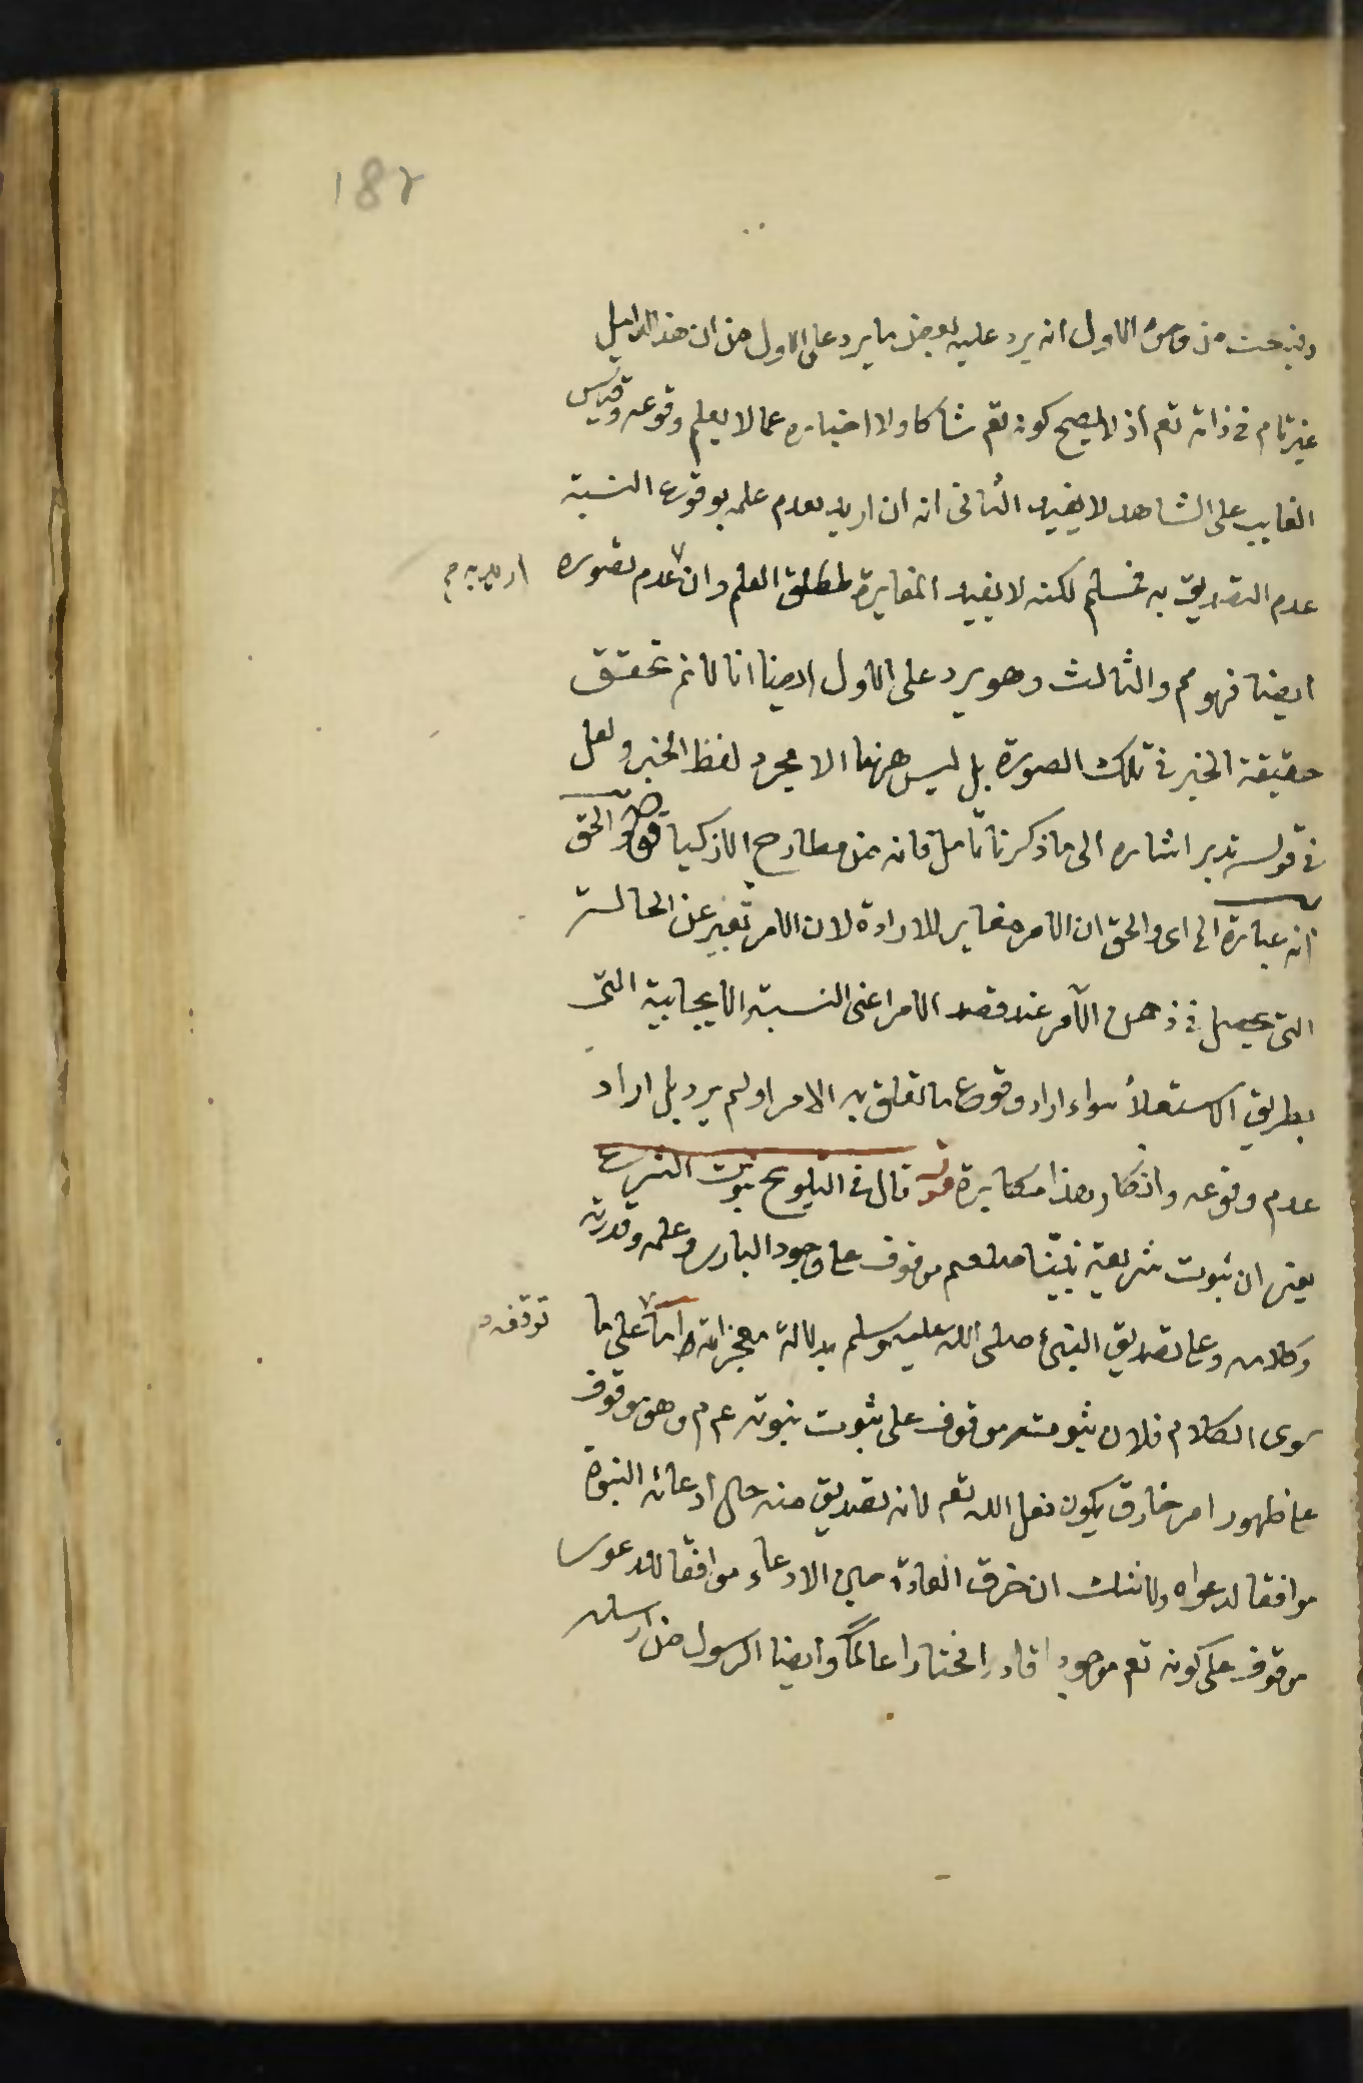 182
وفيه بحث من وجوه الاول انه يرد عليه بعض ما يرد على الاول من ان هذا الدليل
غير تام في ذاته تعم اذ لا يصح كونه تعم شاكا ولا اخباره عما لا يعلم وقوعه وقياس
الغايب على الشاهد لا يفيد الثانى انه ان اريد بعدم علمه بوقوع النسبة
عدم التصديق به فمسلم لكنه لا يفيد المغايرة لمطلق العلم وان عدم تصوره
اريد به م
ايضا فهو مم والثالث وهو يرد على الاول ايضا انا لا نم تحقق
حقيقة الخبر في تلك الصورة بل ليس ههنا الا مجرد لفظ الخبر ولعل
في قوله تدبر اشاره الى ما ذكرنا تأمل فانه من مطارح الاذكيا قوله والحق
انه عبارة الخ اى والحق ان الامر مغاير للارادة لان الامر تعبير عن الحالة
التى يحصل في ذهن الآمر عند قصد الامر اعنى النسبة الايجابية التى
بطريق الاستعلأ سواء اراد وقوع ما تعلق به الامر او لم يرد بل اراد
عدم وقوعه وانكار هذا مكابرة قوله قال في التلويح ثبوت الشرع
يعنى ان ثبوت شريعة نبيّنا صلعم موقوف على وجود البارى وعلمه وقدرته
وكلامه وعلى تصديق النبى صلى الله عليه وسلم بدلالة معجزاته اما على ما
توقفه م
سوى الكلام فلان ثبوته موقوف على ثبوت نبوته عم م وهو موقوف
على ظهور امر خارق يكون فعل الله تعم لانه تصديق منه حال ادعائه النبوة
موافقا لدعواه ولا شك ان خرق العادة حين الادعاء موافقا للدعوى
موقوف على كونه تعم موجودا قادرا مختارا عالماً وايضا الرسول من ارسله